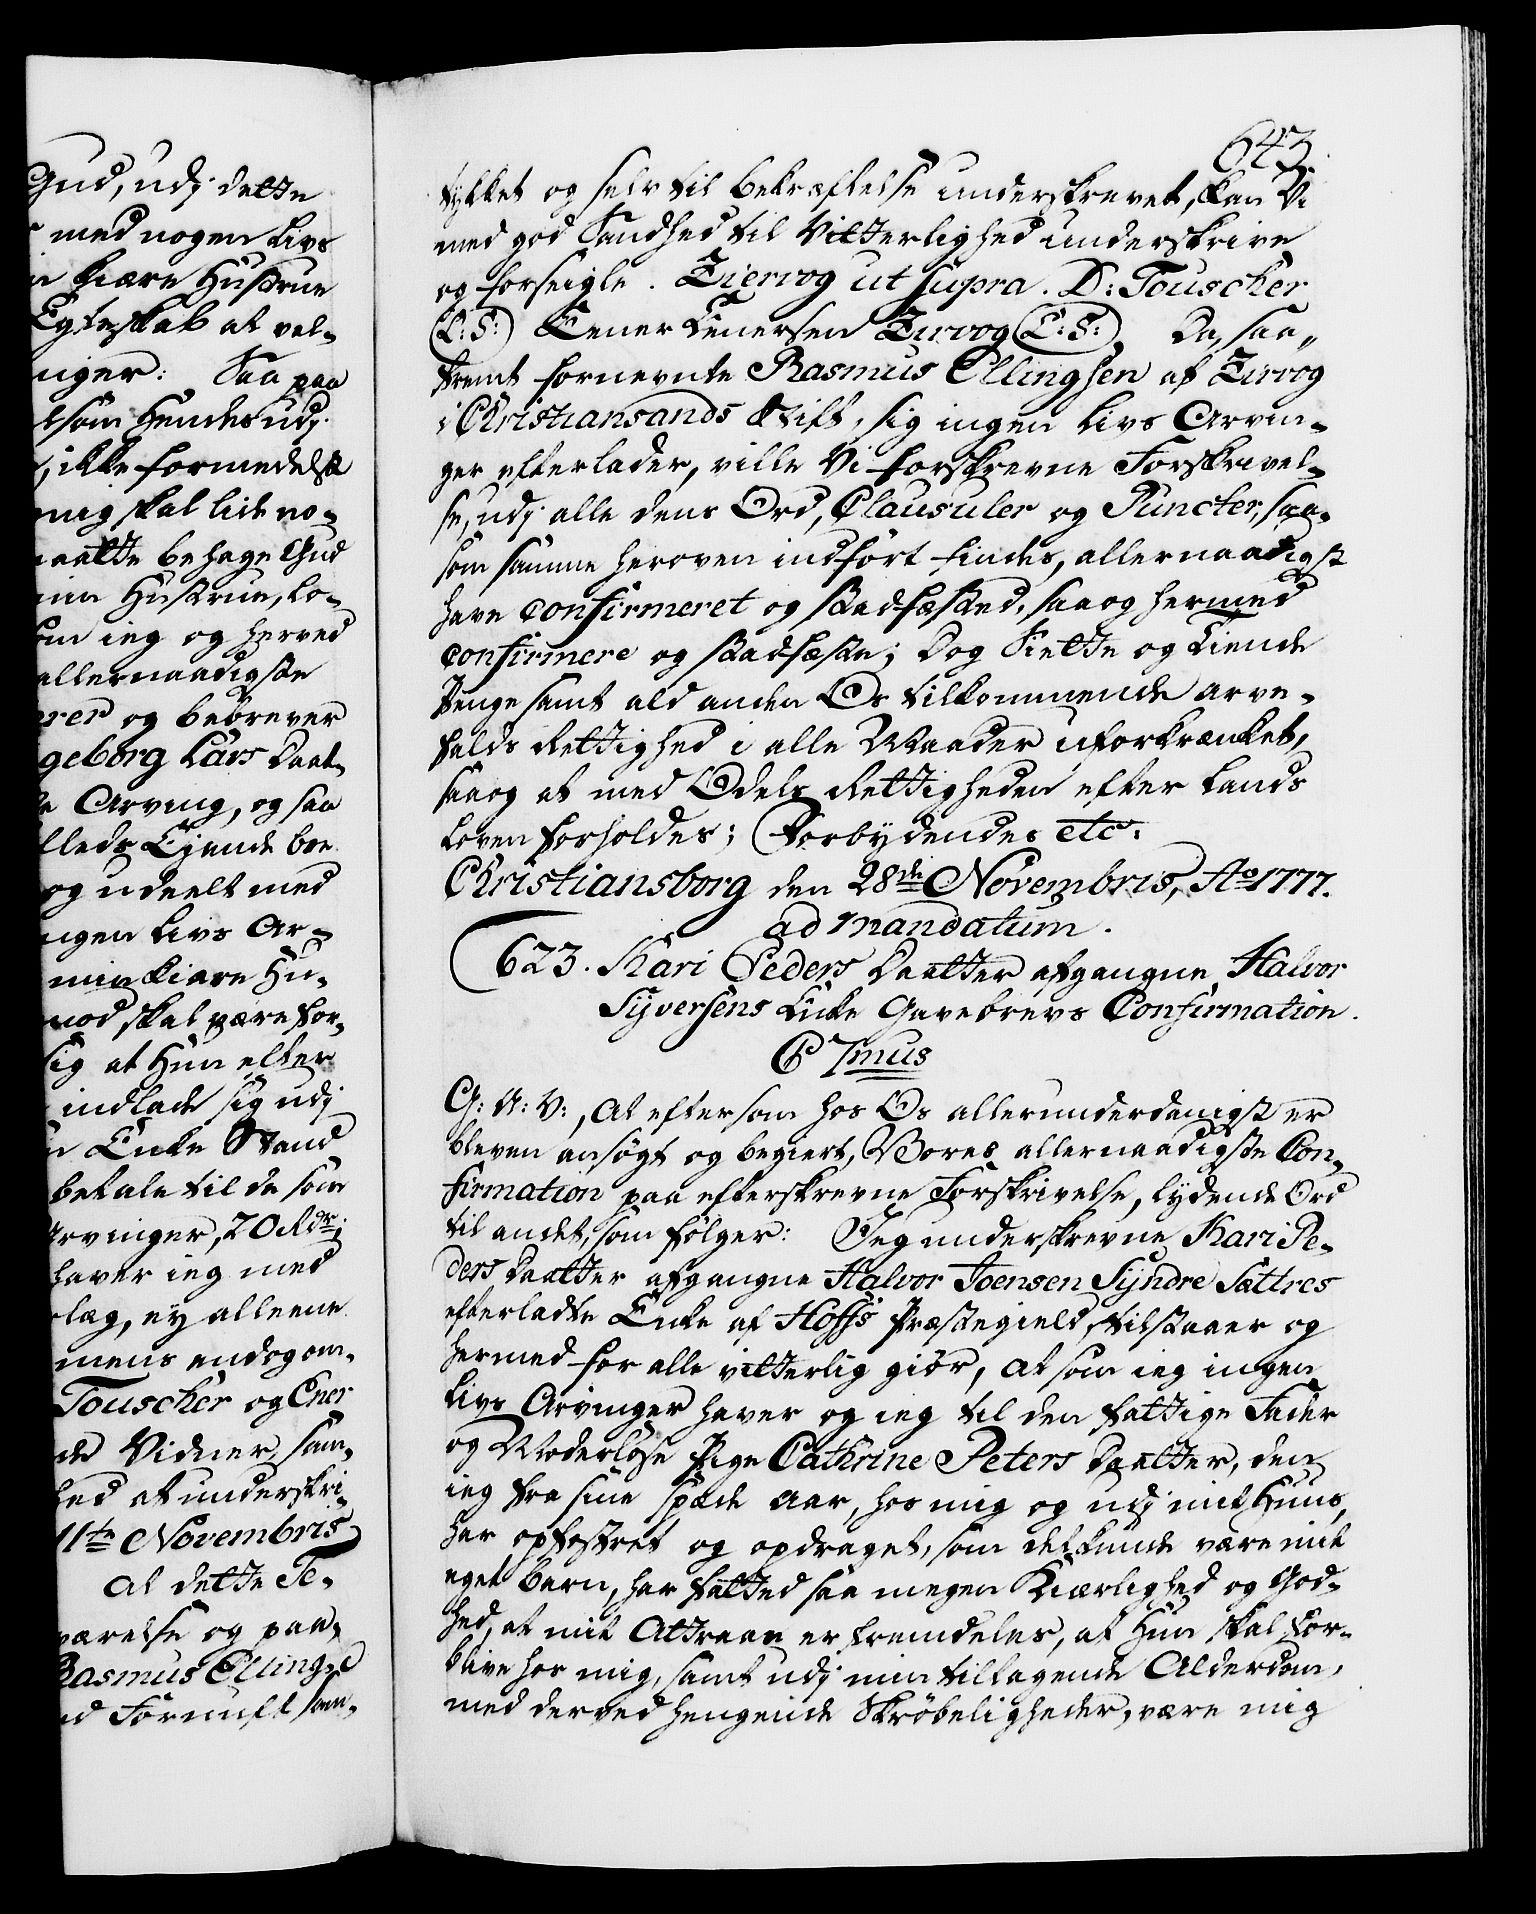 Gud, udj dette
med nogen Livs
kiære Hustrue
Egteskab at vel-
nger: Saa paa
som Hendes udj
, ikke formedelst
mig skal lide no-
maatte behage Gud
min Hustrue, Lo-
som ieg og herved
allernaadigste
rer og bebrever
geborg Lars Daat-
Arving, og saa
lleds Eiende boe
og udeelt med
ingen Livs Ar-
min kiære Hu-
mod skal være for-
sig at Hun efter
indlade sig udj
Enke Stand
betale til de som
Arvinger, 20 Rdr;
haver ieg med
læg, ey alleene
mens endog om-
Touscher og Ener
de Vidner, sam-
hed at underskri-
11te Novembris
At dette Te-
værelse og paa-
Rasmus Ellings-
d Fornuft sam-
643.
tykket og selv til bekræftelse underskrevet, kan Vi
med god Sandhed til Vitterlighed underskrive
og forseigle. Ziervog ut supra. D: Touscher
(L:S:) Eener Eenersen Zirvog (L:S:), Da, saa-
fremt fornevnte Rasmus Ellingsen af Zirvog
i Christiansands Stift, sig ingen Livs Arvin-
ger efterlader, ville Vi forskrevne Forskrivel-
se, udj alle dens Ord, Clausuler og Puncter, saa-
som samme heroven indført findes, allernaadigst
have confirmeret og stadfæsted, saa og hermed
confirmere og stadfæste; Dog Siette og Tiende
Penge samt ald anden Os tilkommende arve-
falds Rettighed i alle Maader uforkrænket,
saa og at med Odels Rettigheden efter Lands
Loven forholdes; Forbydendes etc:
Christiansborg den 28de Novembris, Ao 1777.
ad mandatum.
623. Kari Peders Daatter afgangne Halvor
Syversens Enke Gavebrevs Confirmation.
C 7mus
C: A: V:, At eftersom hos Os allerunderdanigst er
bleven ansøgt og begiert, Vores allernaadigste Con-
firmation paa efterskrevne Forskrivelse, lydende Ord
til andet, som følger: Jeg underskrevne Kari Pe-
ders Daatter afgangne Halvor Joensen Syndre Sættres
efterladte Enke af Hoffs Præstegield, tilstaaer og
hermed for alle vitterlig giør, at som ieg ingen
Livs Arvinger haver og ieg til den fattige Fader
og Moderløse Pige Cathrine Peters Daatter, den
ieg fra sine spæde Aar, hos mig og udj mit Huus,
har opfostret og opdraget, som det kunde være mit
eget Barn, har fatted saa megen Kiærlighed og God-
hed, at mit Attraae er fremdeles, at Hun skal for-
blive hos mig, samt udj min tiltagende Alderdom,
med derved hengende Skrøbeligheder, være mig